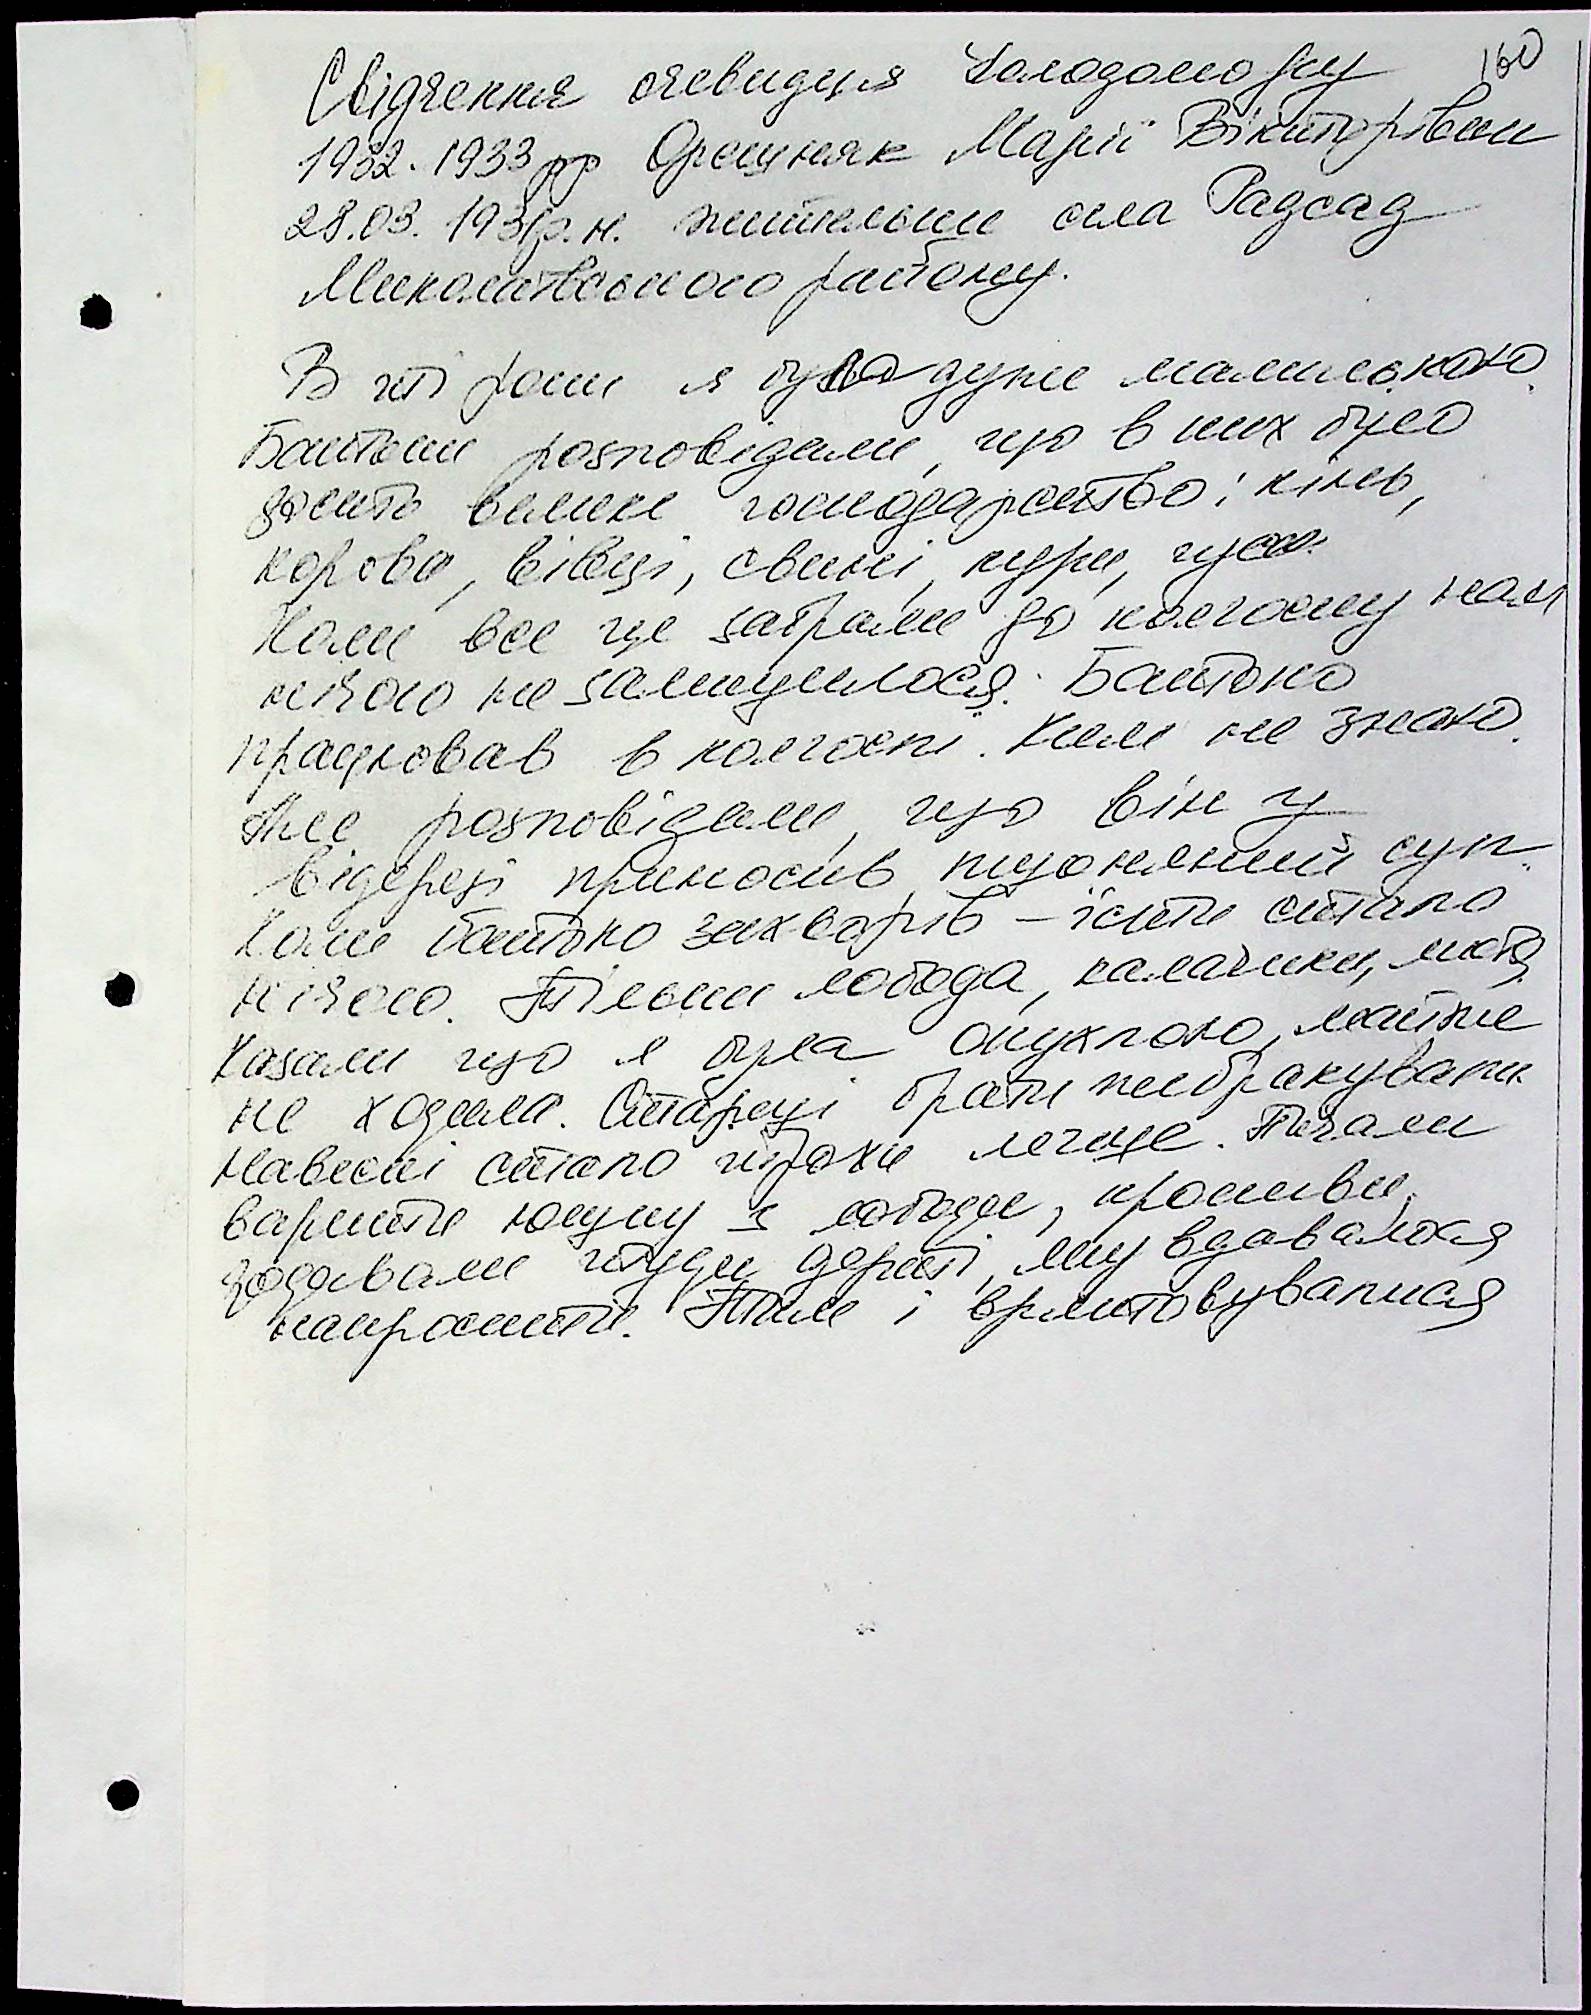 160
Свідчення очевидця Голодомору
1932-1933 рр Орещняк Марії Вікторівни
28.03.1931р.н. жительки села Радсад
Миколаївського району.
В ті роки я була дуже маленькою.
Батьки розповідали, що в них було
досить велике господарство: кінь,
корова, вівці, свині, кури, гуси.
Коли все це забрали до колгоспу нам
нічого не залишилося. Батько
працював в колгоспі. Ким не знаю.
Але розповідали, що він у
відерці приносив пшоняний суп.
Коли батько захворів - їсти стало
нічого. Тільки лобода, калачики,
Казали що я була опухлою, майже
не ходила. Старці брати
Навесні стало трохи легше. Почали
варити юшку з лободи, кропиви,
додавали туди дерті, яку вдавалося
напросити. Тим і врятовувалися